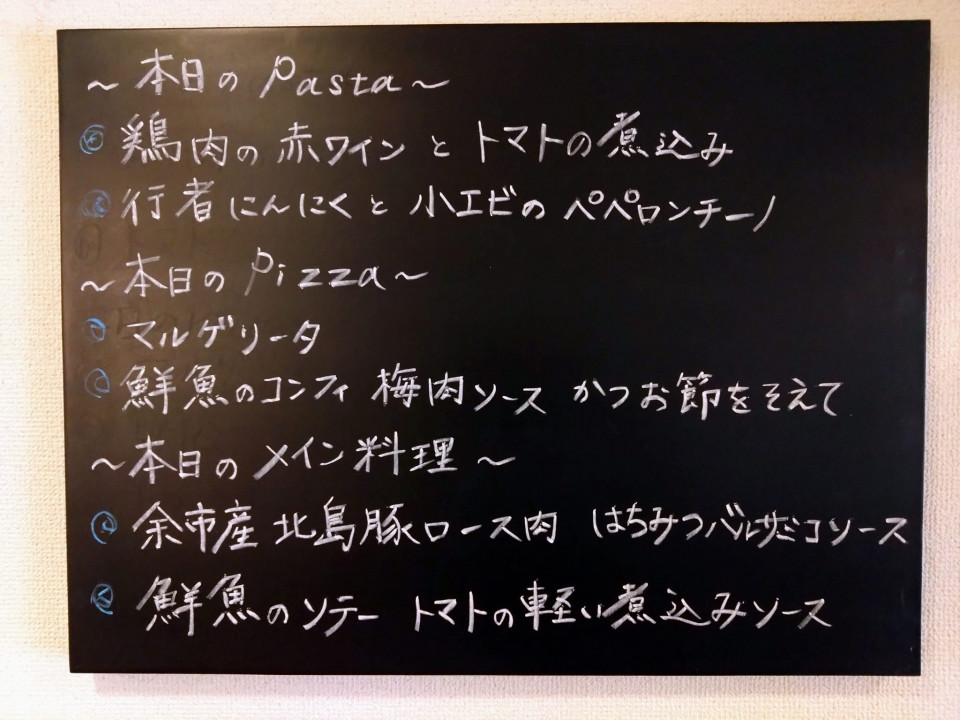 ～本日の Pasta～
鶏肉の赤ワインとトマトの煮込み
行者にんにくと小エビのペペロンチーノ
～本日の Pizza～
マルゲリータ
鮮魚のコンフィ 梅肉ソース かつお節をそえて
～本日のメイン料理～
余市産北島豚ロース肉 はちみつバルサミコソース
鮮魚のソテー トマトの軽い煮込みソース